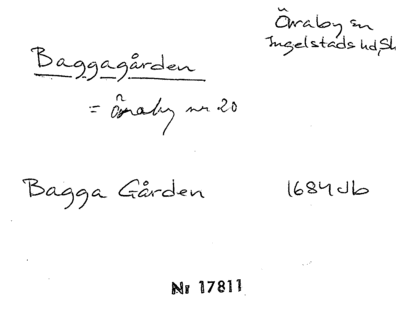 Öraby sn
Ingelstads hd, Sk
Baggagården
= Öraby nr 20
Bagga Gården 1684 Jb
Nr 17811